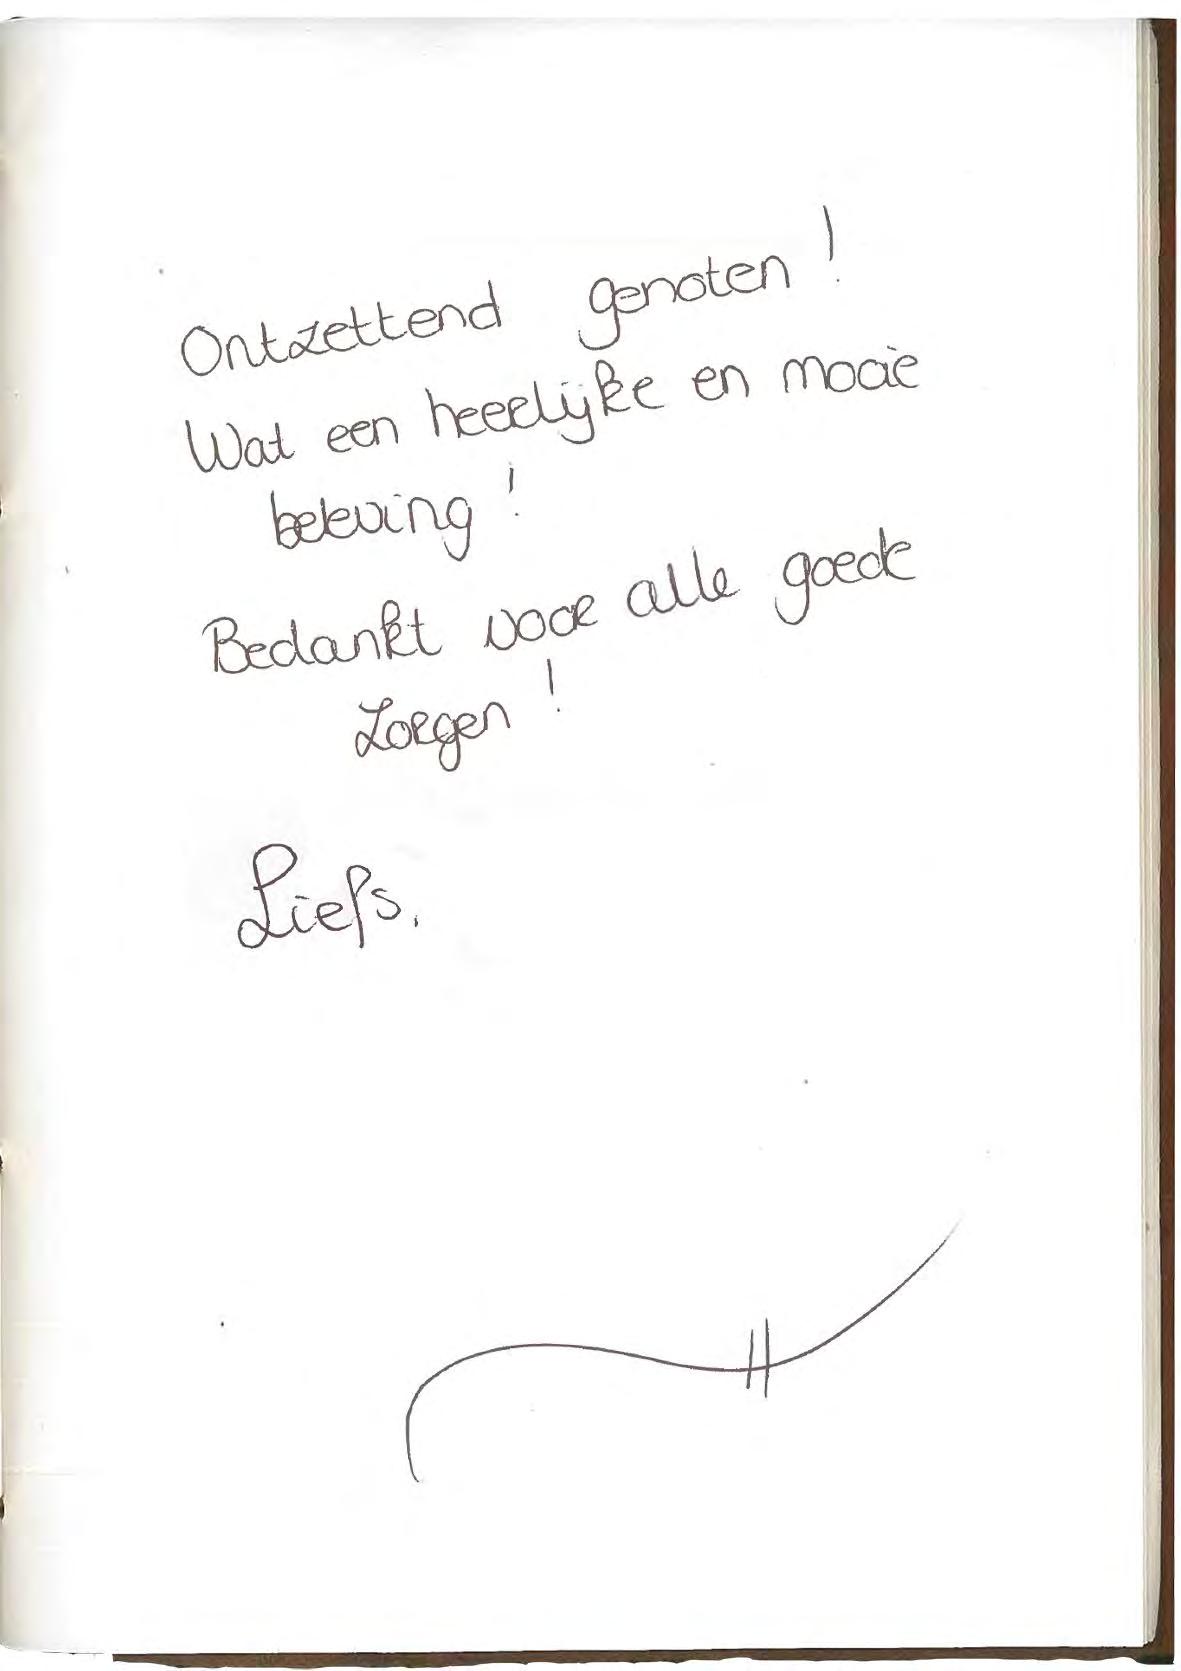 Ontzettend genoten!
Wat een heerlijke en mooie
beleving!
Bedankt voor alle goede
zorgen!
Liefs.